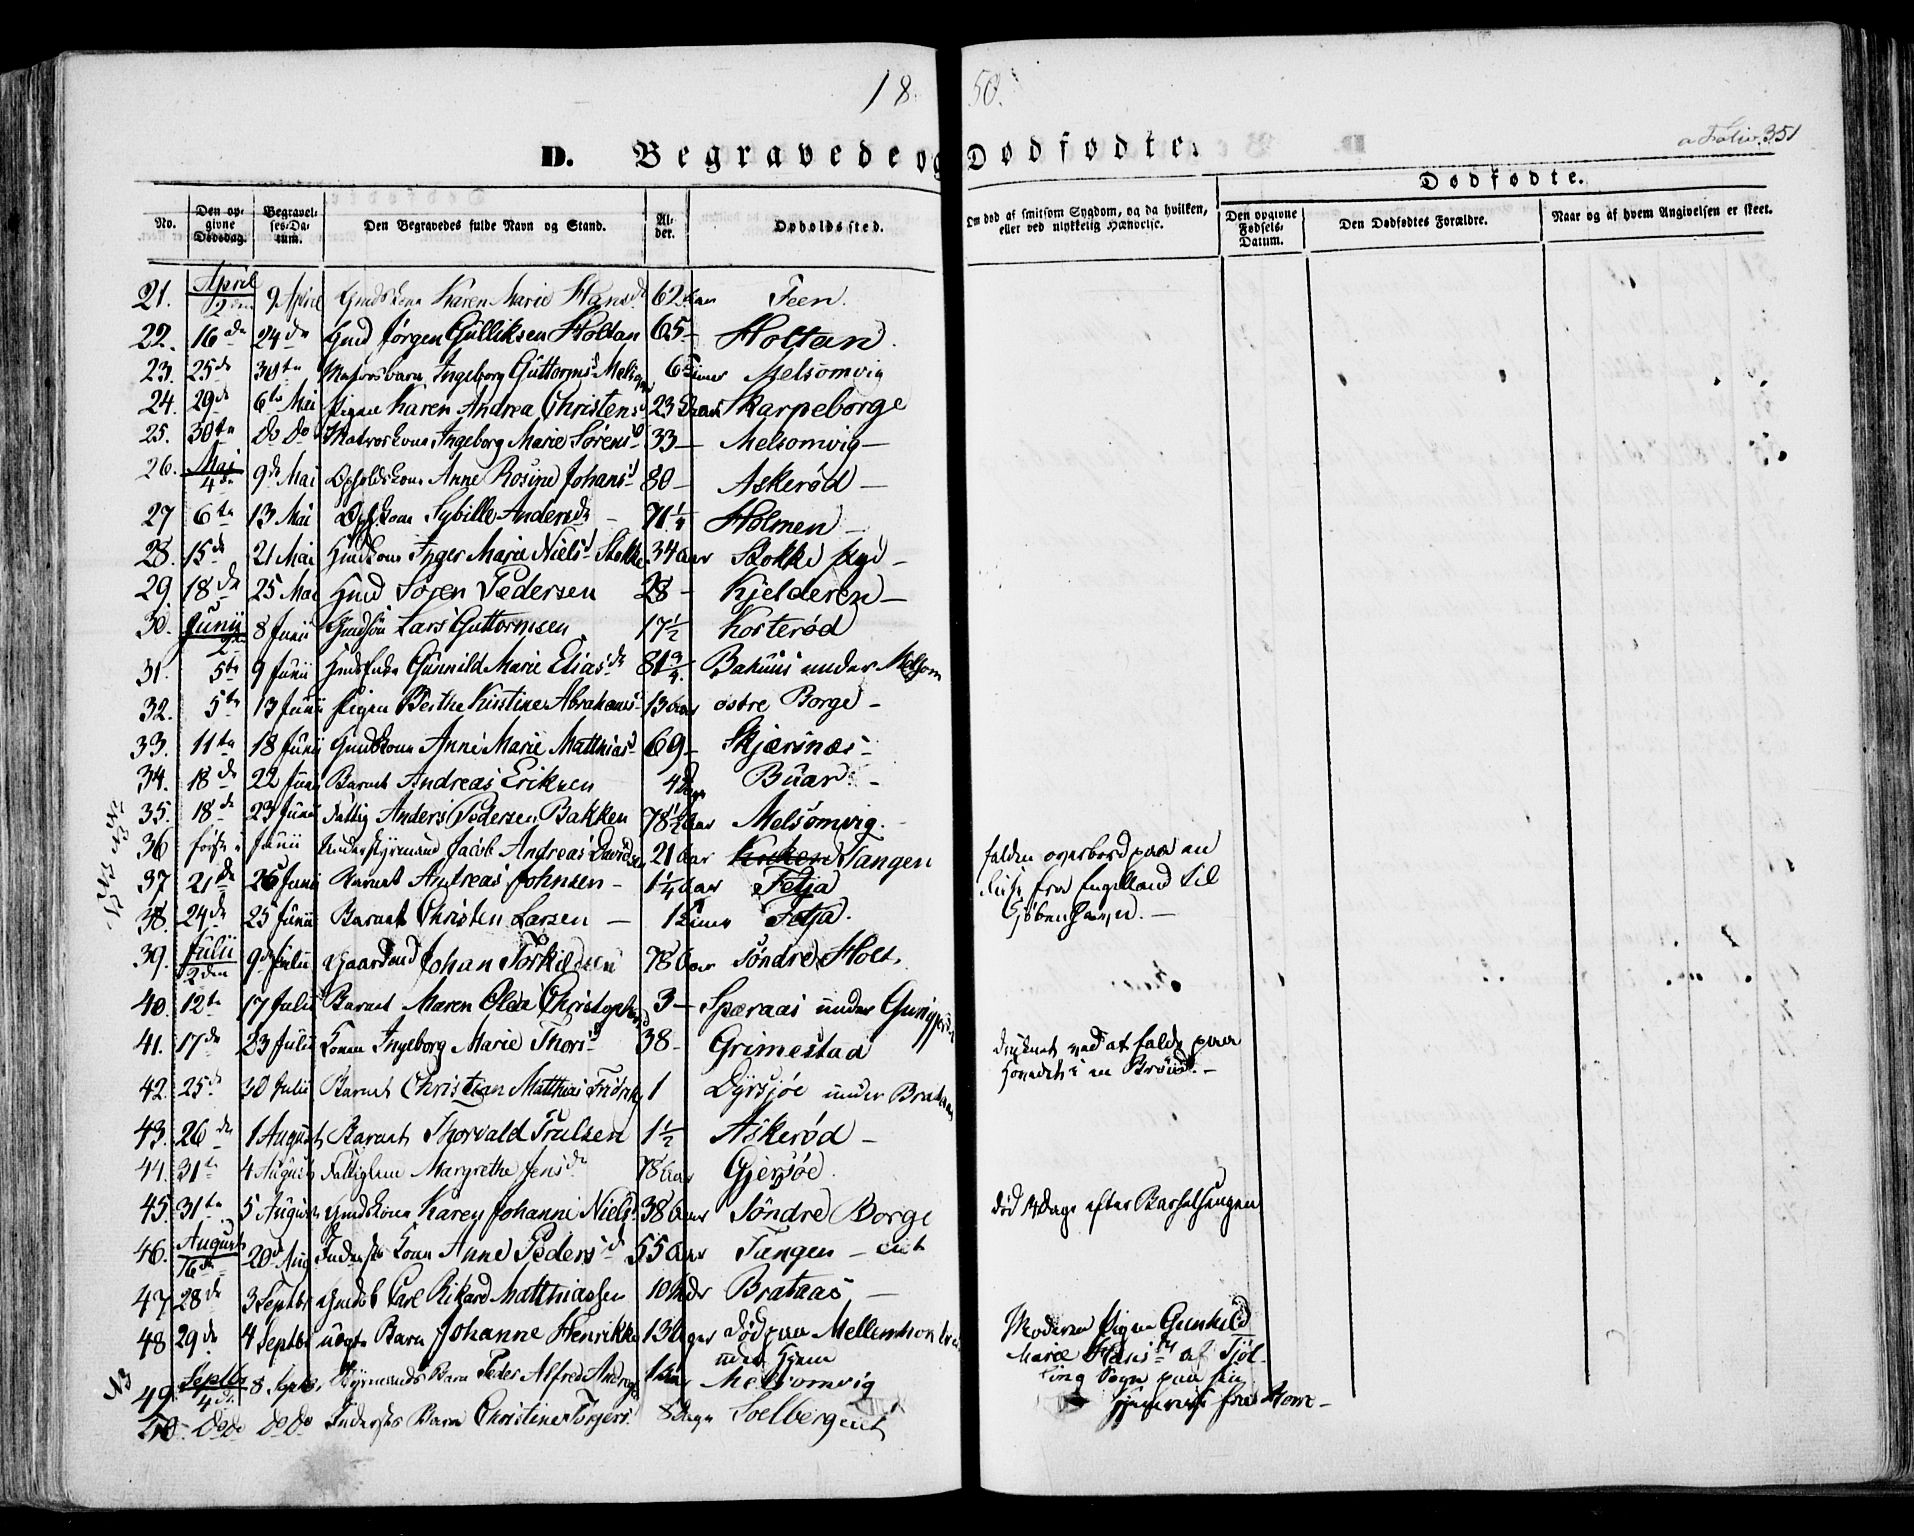 18 50.
a Folio. 351
D. Begravede og Dødfødte.
Dødfødte.
No. Den opgivne Dødsdag. Begravelses-Datum. Den Begravedes fulde Navn og Stand. Alder. Opholdssted. Om død af smitsom Sygdom, og da hvilken, eller ved ulykkelig Hændelse. Den opgivne Fødsels-Datum. Den Dødfødtes Forældre. Naar og af hvem Angivelsen er skeet.
21. April 2den 9 April Gmdskona Karen Marie Hansd. 62 aar Feen.
22. 16de 24de Gmd Jørgen Gulliksen Holtan 65 – Holtan.
23. 25de 30te Matrosbarn Ingeborg Guttormsd. 6 Timer Melsomvig
24. 29de 6te Mai Pigen Karen Andrea Christensd. 23 Aar Skarpeborge
25. 30te do do Matroskona Ingeborg Marie Sørensd. 33 – Melsomvig –
26. Mai 4de 9de Mai Opholdskona Anne Rosine Johansd. 80 – Askerød –
27 6te 13 Mai Ophkona Sybille Andersd. – 71 1/4 Holmen –
28. 15de 21 Mai Gmdkona Inger Marie Nielsd. Stokke 34 aar Stokke
29. 18de 25 Mai Gmd Søren Pedersen 28 – Kjelderen –
30. Junii 2den 8 Junii Gmdsøn Lars Guttormsen 17 1/2 Kosterød
31. 5te 9 Junii Gmdsenke Gunnild Marie Eliasd. 81 3/4 Bakuus under Melsom
32. 5te 13 Junii Pigen Berthe Kirstine Abrahamsd. 13 aar østre Borge –
33. 11te 18 Junii Gmdkona Anne Marie Matthiasd. 69 – Skjærsnæs –
34. 18de 22 Junii Barnet Andreas Eriksen 4 Dage Buar –
35. 18de 23 Junii Fattig Anders Pedersen Bakken 78 1/2 Aar Melsomvig. –
36 først i Junii Understyrmand Jacob Andreas Davidsen 21 Aar Tangen falden overbord paa en
37 21de 26 Junii Barnet Andreas Johnsen – 1 1/4 Aar Fetja Reise fra Engelland til
38. 24de 25 Junii Barnet Christen Larsen – 1 Time Fetja. Kjøbenhavn. –
39. Julii 2den 9de Julii Gaardmd Johan Torkildsen 78 Aar søndre Holt.
40. 12te 17 Julii Barnet Maren Olea Christophersd. 3 – Speraas under
41. 17de 23 Julii Konen Ingeborg Marie Thorsd. 38 – Grimestad druknet ved at falde paa
Hovedet i en Brønd. –
42. 25de 30 Julii Barnet Christian Matthias Fredrik 1 Dyrsjøe under Brataas
43. 26de 1 August Barnet Thorvald Trulsen 1 1/2 Askerød –
44. 31te 4 August Fattiglem Margrethe Jensd. 78 Aar Gjersøe.
45. 31te 5 August Gmdskona Karen Johanne Nielsd. 38 Aar Søndre Borge død 14 Dage efter Barselsengen
46. August 16de 20de Aug Inderstes Kona Anne Pedersd. 55 Aar Tangen –
47 28de 3 Septbr Gmdsb. Carl Rikard Matthiassen 10 Brataas –
48 29de 4 Septbr uægte Barn Johanne Henrikke 13 Dager død paa Mellembon Moderen Pigen Gunhild
Marie Hansd. af Tjøl-
ling Sogn paa sin
Hjemreise fra Horn –
49. Septbr 4de 8 Septbr Styrmands Barn Peder Alfred 1 Melsomvig
50. do do do do Inderstes Barn Christine Torgersd. 8 Dage Solberg